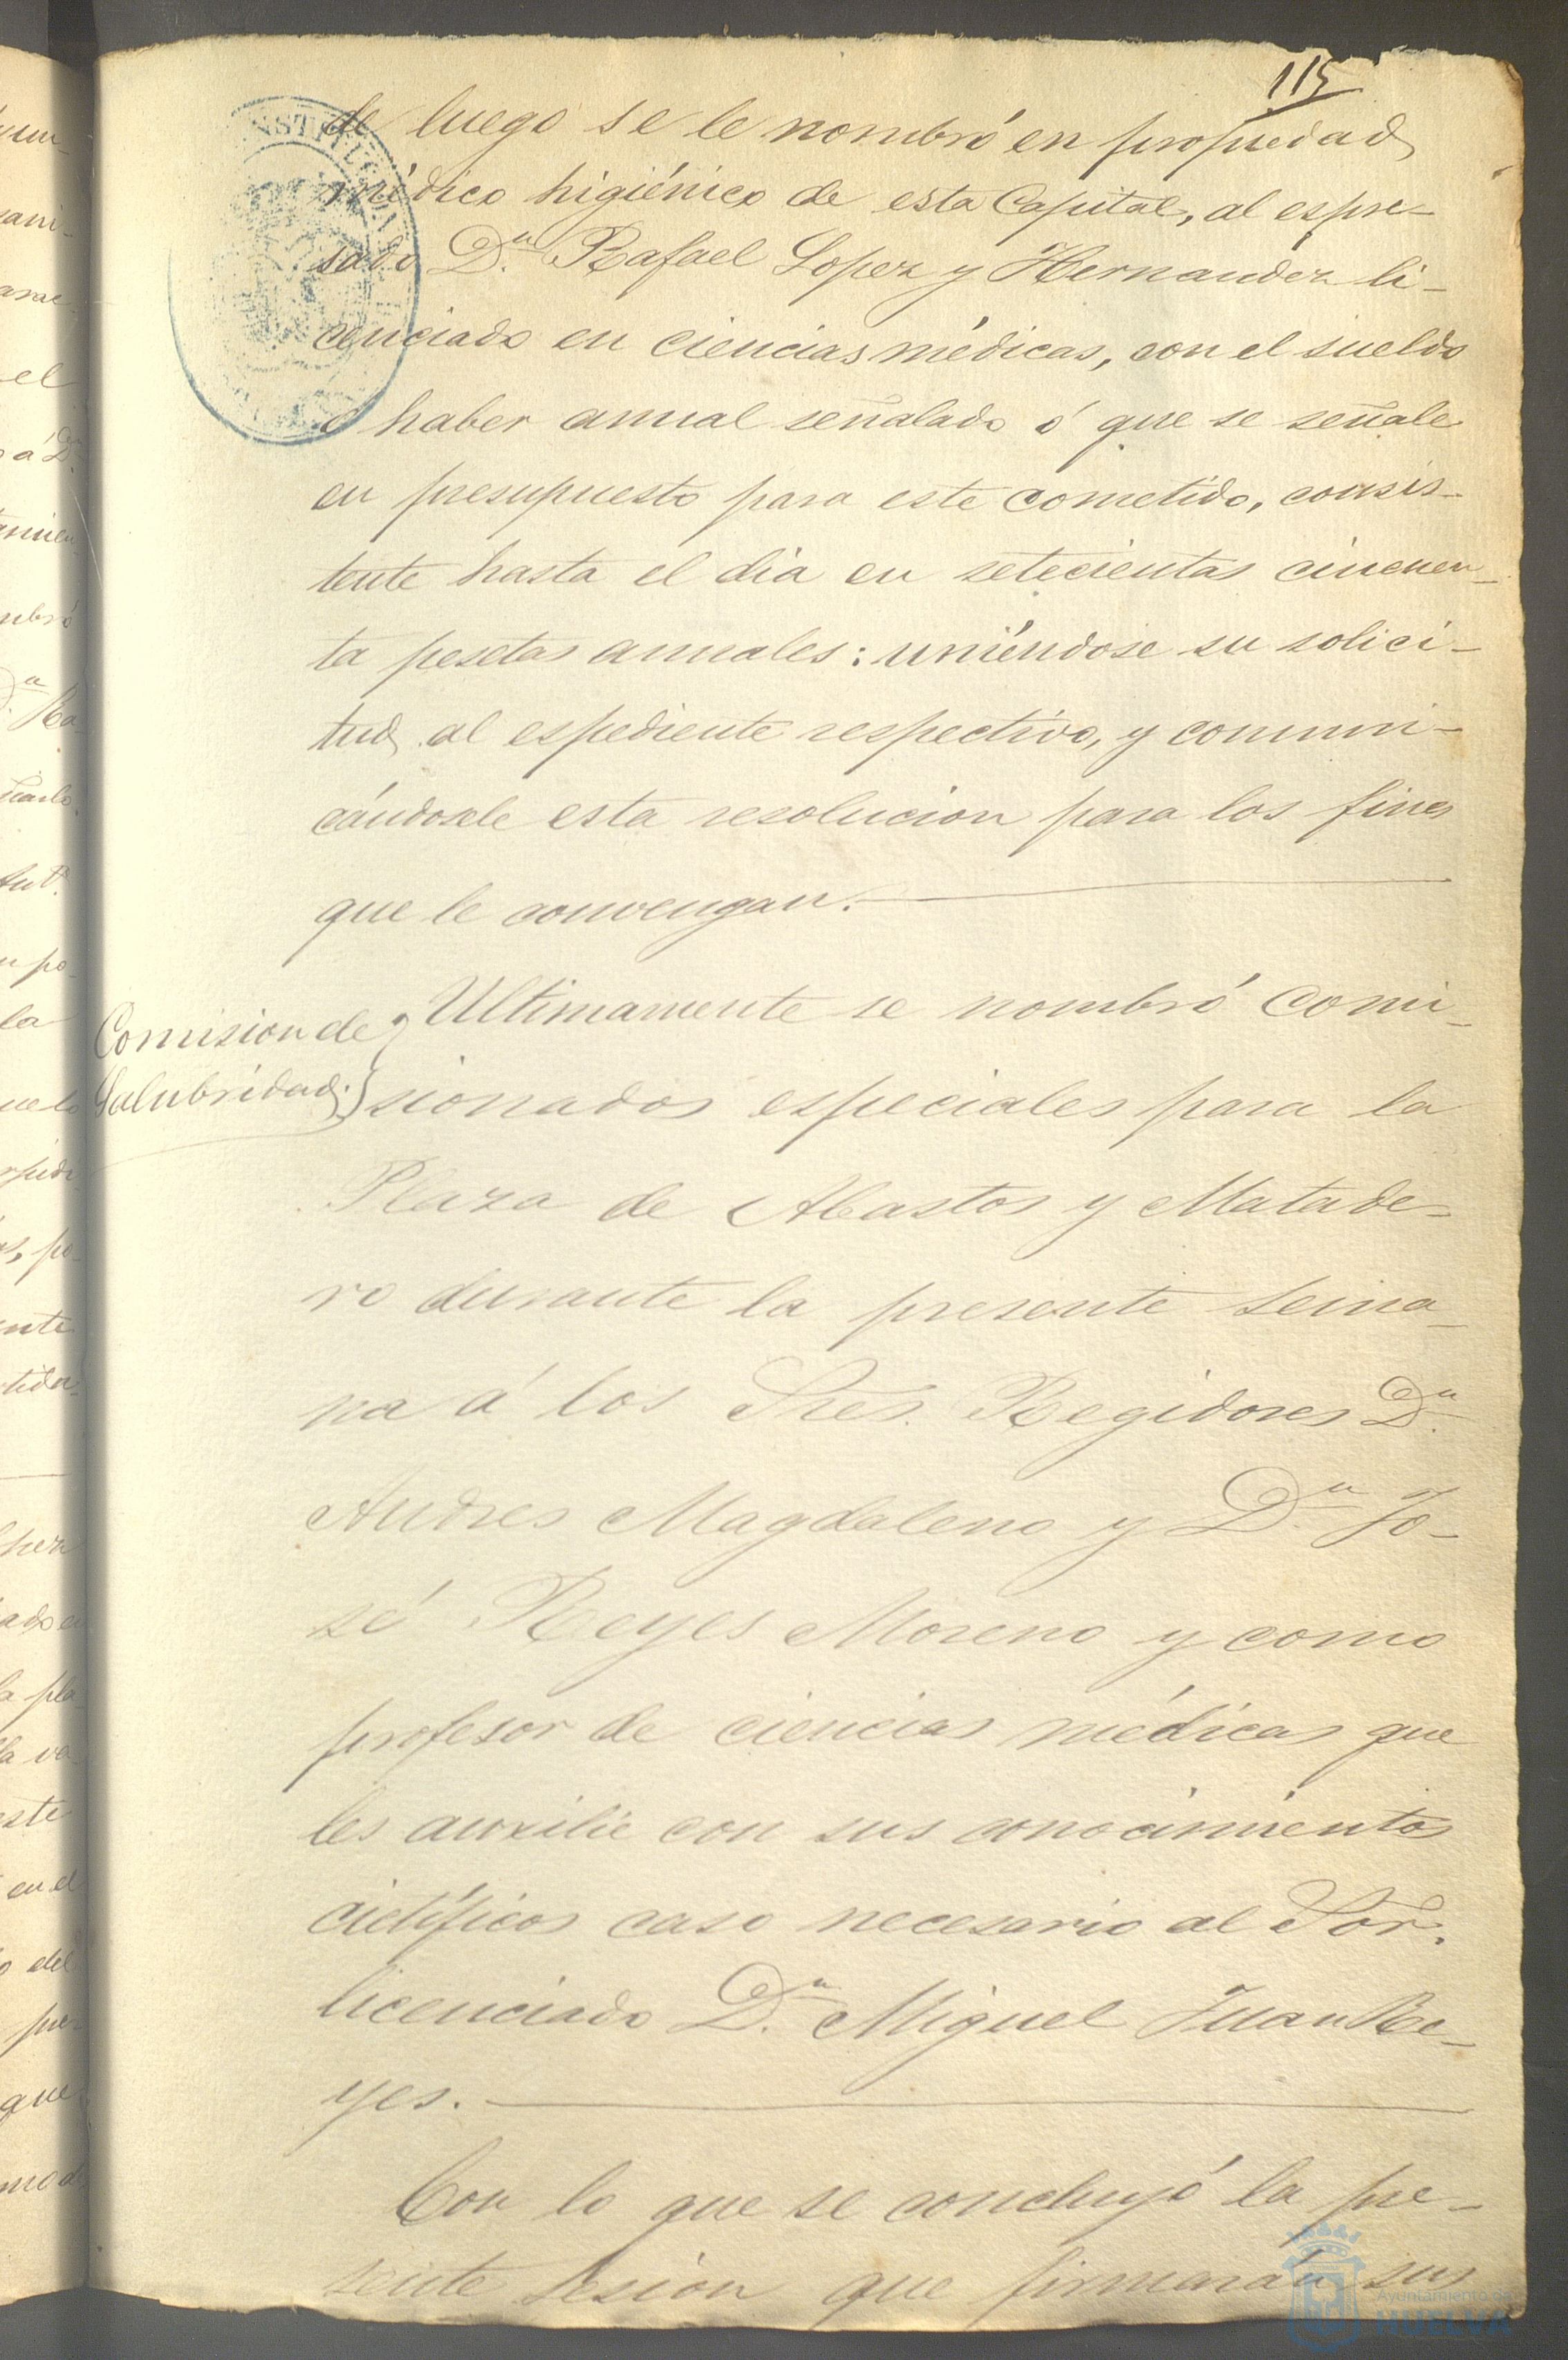 115
de luego se le nombró en propiedad
médico higiénico de esta Capital, al espre-
sado D.n Rafael Lopez y Hernandez li-
cenciado en ciencias médicas, con el sueldo
o haber anual señalado ó que se señale
en presupuesto para este cometido, consis-
tente hasta el dia en setecientas cincuen-
ta pesetas anuales: uniéndose su solici-
tud al espediente respectivo, y comuni-
cándosele esta resolucion para los fines
que le convengan.
Comision de
Salubridad.
Ultimamente se nombró comi-
sionados especiales para la
Plaza de Abastos y Matade-
ro durante la presente sema-
na á los Sres. Regidores D.n
Andres Magdaleno y D.n Jo-
sé Reyes Moreno y como
profesor de ciencias médicas que
les auxilie con sus conocimientos
cietíficos caso necesario al Sor.
licenciado D.n Miguel Juan Re-
yes.
Con lo que se concluyó la pre-
sente sesion que firmarán sus
Ayuntamiento de
HUELVA